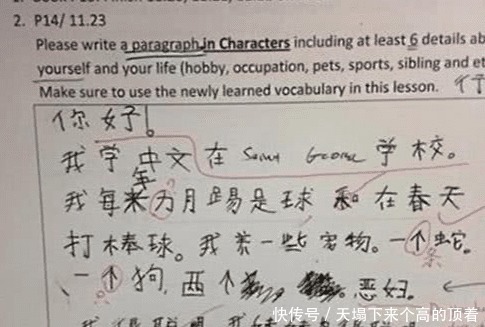 2. P14/ 11.23
Please write a paragraph In Characters including at least 6 details ab
yourself and your life (hobby, occupation, pets, sports, sibling and et
Make sure to use the newly learned vocabulary in this lesson.
你好!
我学中文在 Saint George 学校。
我每年 为月踢是球和在春天
打棒球。我养一些宠物。一个蛇。
条
一个狗,两个 恶妇。
快传号 / 天塌下来个高的顶着